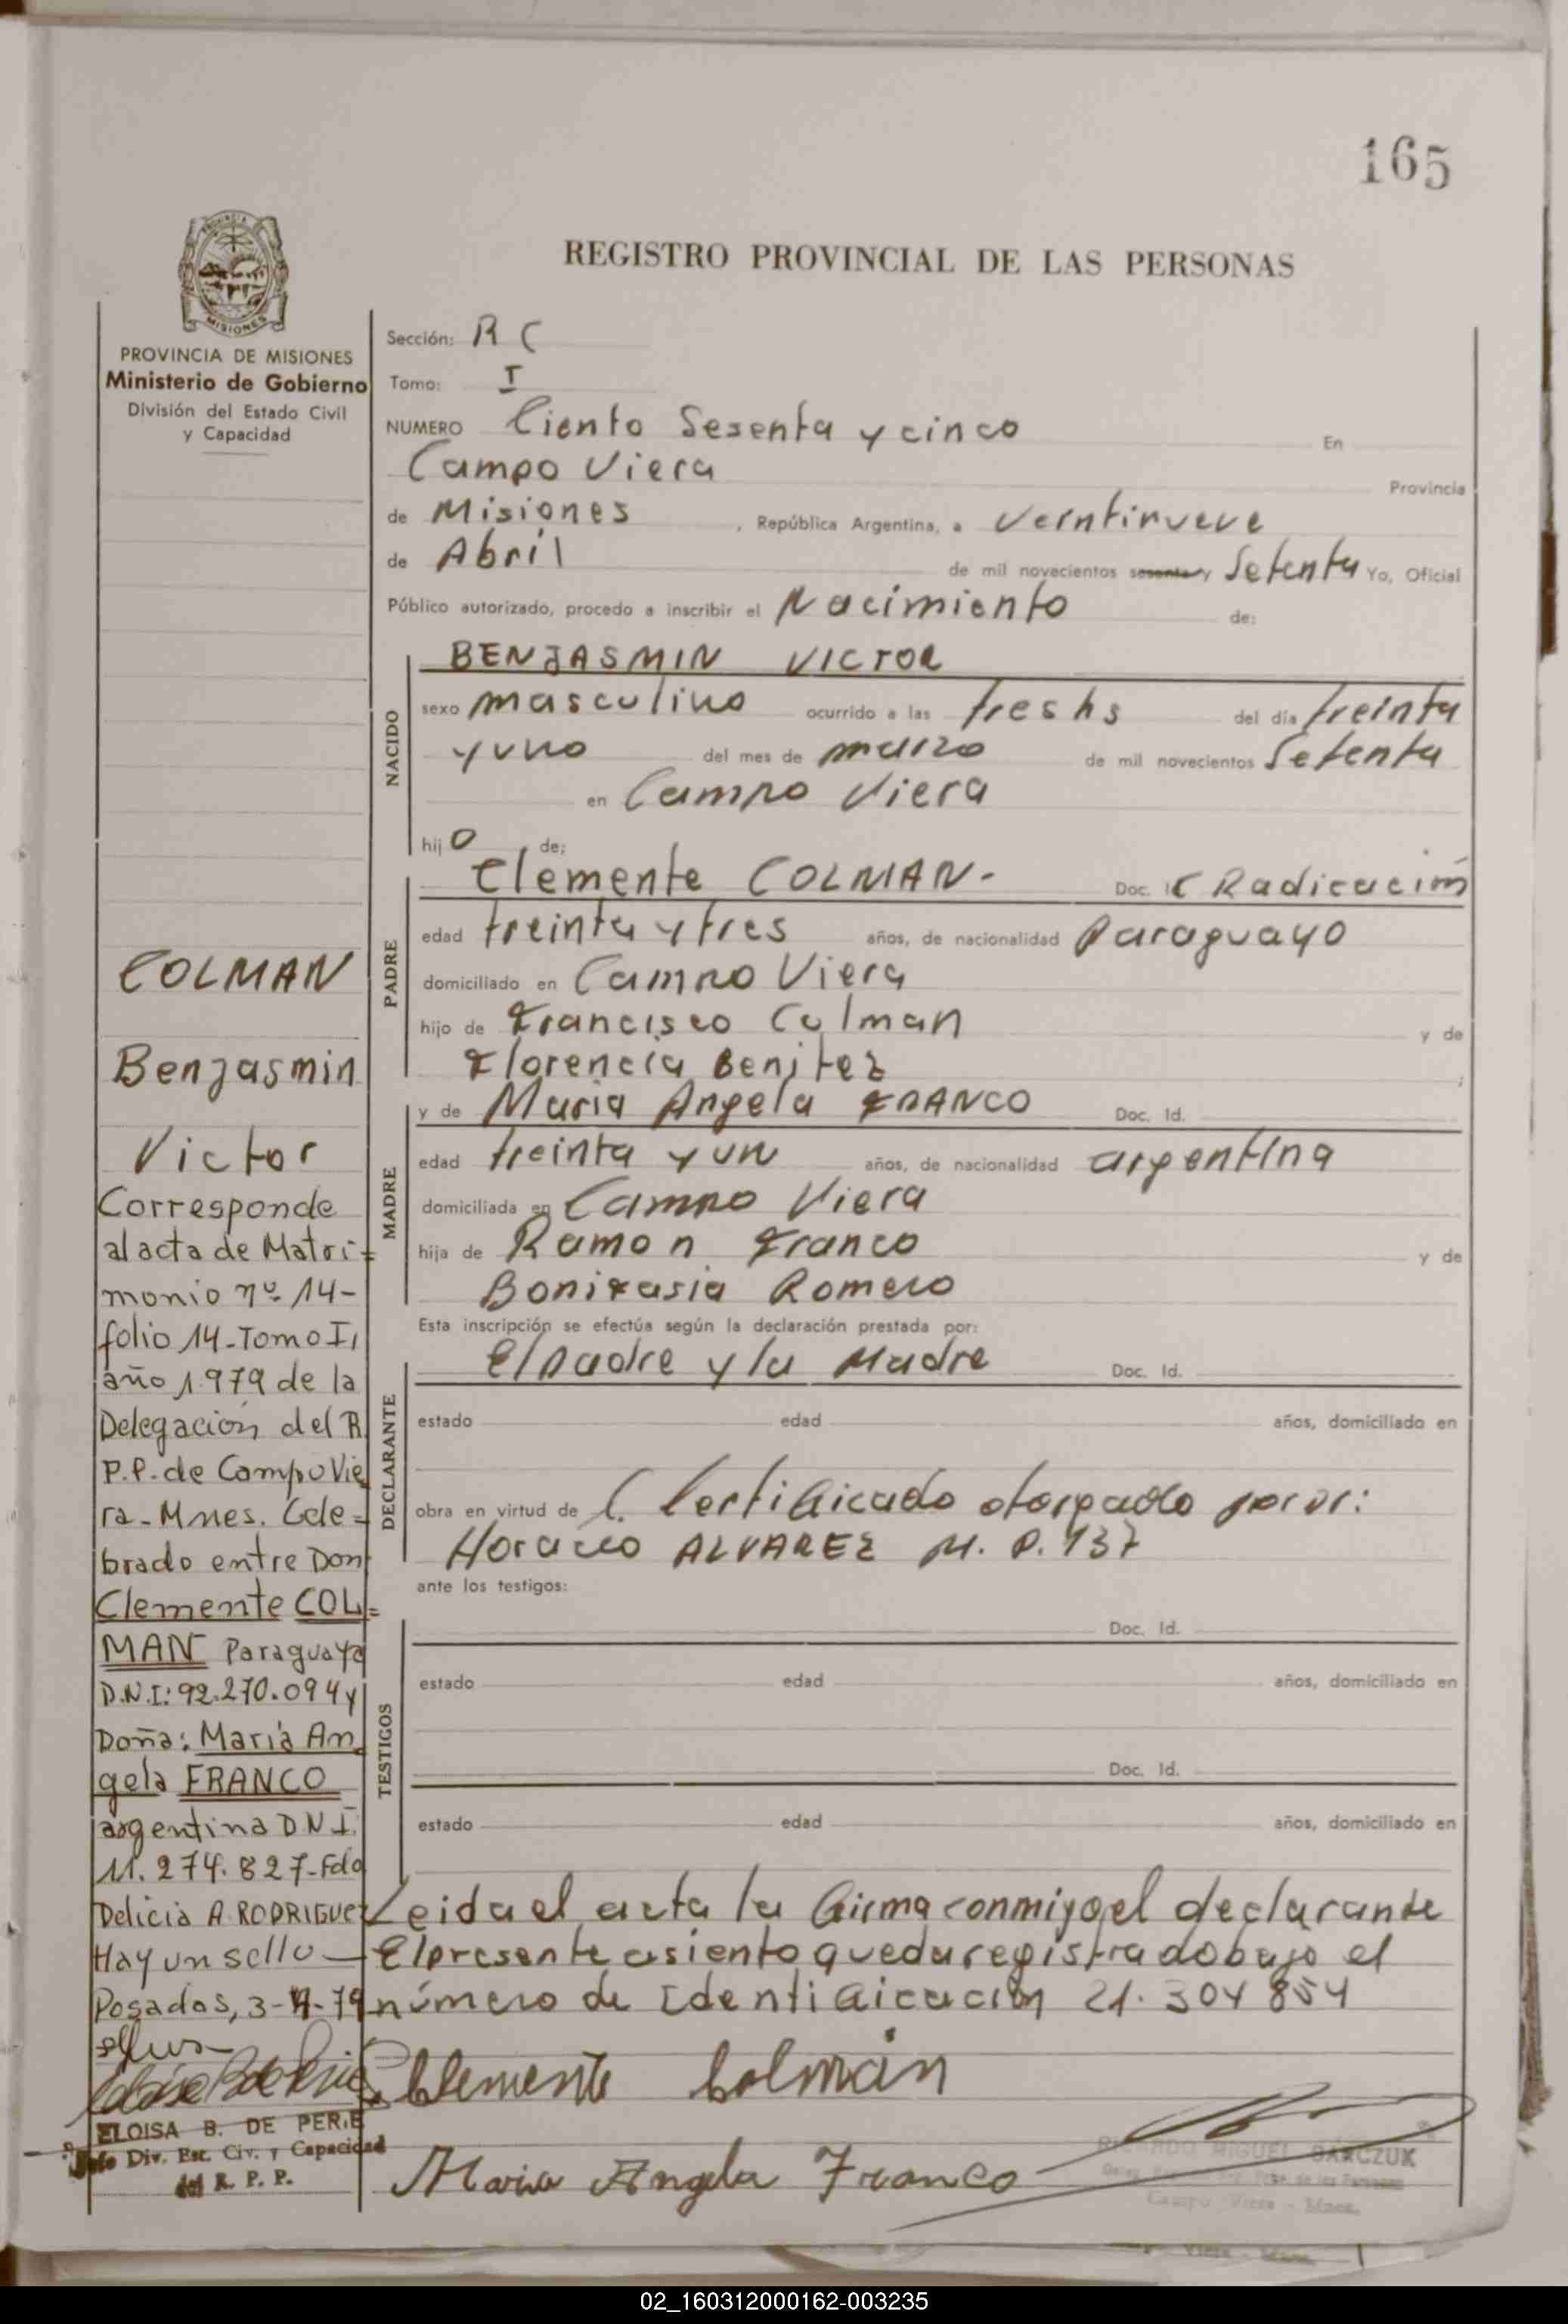 165
REGISTRO PROVINCIAL DE LAS PERSONAS
MISIONES
PROVINCIA DE MISIONES
Ministerio de Gobierno
División del Estado Civil
y Capacidad
Sección: R C
Tomo: I
NUMERO Ciento Sesenta y cinco En
Campo Viera Provincia
de Misiones , República Argentina, a Veintinueve
de Abril de mil novecientos sesenta y Setenta Yo, Oficial
Público autorizado, procedo a inscribir el Nacimiento de:
NACIDO
BENJASMIN VICTOR
sexo masculino ocurrido a las tres hs del día treinta
y uno del mes de marzo de mil novecientos Setenta
en Campo Viera
hijo de:
PADRE
Clemente COLMAN- Doc. C Radicación
edad treinta y tres años, de nacionalidad Paraguayo
domiciliado en Campo Viera
hijo de Francisco Colman y de
Florencia Benitez
MADRE
y de Maria Angela FRANCO Doc. Id.
edad treinta y un años, de nacionalidad argentina
domiciliada en Campo Viera
hija de Ramon Franco y de
Bonifasia Romero
Esta inscripción se efectúa según la declaración prestada por:
DECLARANTE
El padre y la Madre Doc. Id.
estado edad años, domiciliado en
obra en virtud de C. Certificado otorgado por Dr:
Horacio ALVAREZ M. P. 137
ante los testigos:
TESTIGOS
Doc. Id.
estado edad años, domiciliado en
Doc. Id.
estado edad años, domiciliado en
Leida el acta la firma conmigo, el declarante
El presente asiento queda registrado bajo el
número de Identificación 21. 304 854
Clemente Colmán
Maria Angela Franco
RICARDO MIGUEL BARCZUK
Campo Viera - Mnes.
COLMAN
Benjasmin
Victor
Corresponde
al acta de Matri=
monio nº 14-
folio 14-Tomo I,
año 1.979 de la
Delegación del R.
P.P. de Campo Vie
ra-Mnes. Cele=
brado entre Don
Clemente COL=
MAN Paraguayo
D.N.I: 92.270.094 y
Doña: María An
gela FRANCO
argentina D N I.
11.274.827-Fdo
Delicia A. RODRIGUEZ
Hay un sello-
Posadas, 3-4-79
ELOISA B. DE PERIE
Jefe Div. Est. Civ. y Capacidad
del R. P. P.
02_160312000162-003235